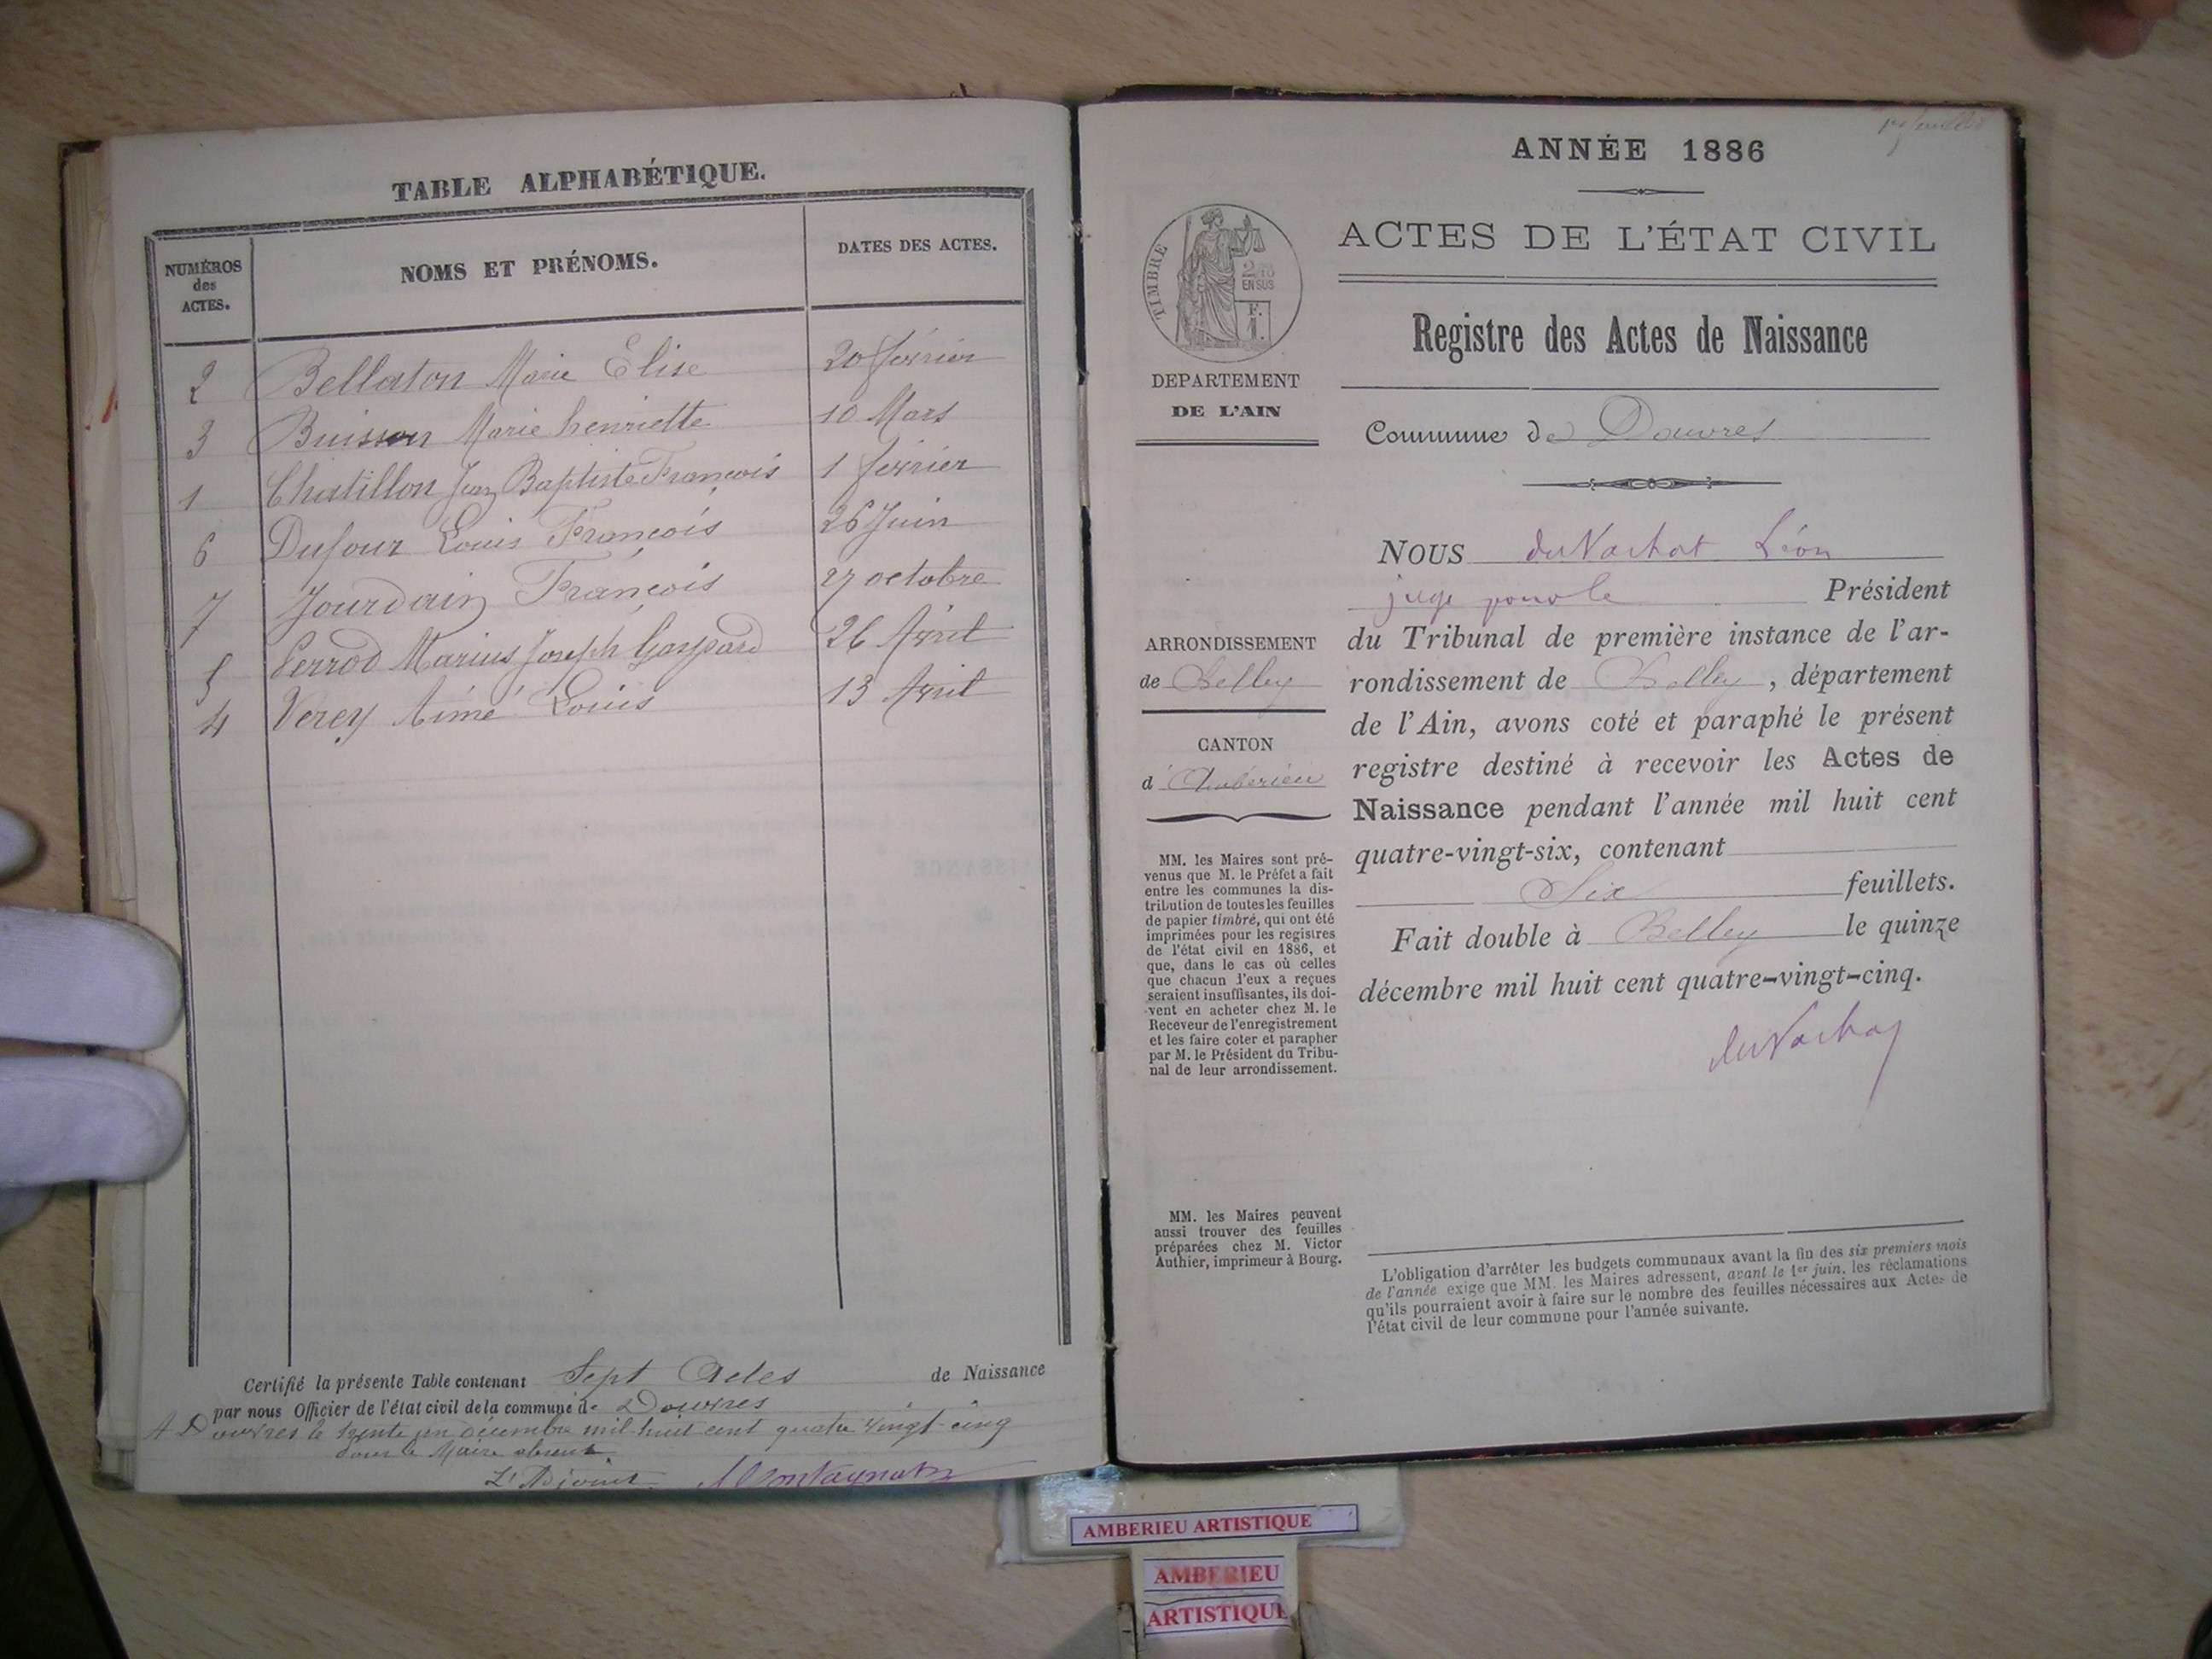 TABLE ALPHABÉTIQUE.
NUMÉROS
des
ACTES.
NOMS ET PRÉNOMS.
DATES DES ACTES.
2 Bellaton Marie Elise 20 février
3 Buisson Marie henriette 10 Mars
1 Chatillon Jean Baptiste François 1 février
6 Dufour Louis François 26 Juin
7 Jourdain François 27 octobre
5 Perrod Marius Joseph Gaspard 26 Avril
4 Verey Aimé Louis 13 Avril
Certifié la présente Table contenant Sept Actes de Naissance
par nous Officier de l'état civil de la commune de Douvres
A Douvres le trente un décembre mil huit cent quatre vingt cinq
Pour le Maire absent
L'Adjoint Montagnat
ANNÉE 1886
TIMBRE
2/10
EN SUS
F.
1.
DEPARTEMENT
DE L'AIN
ACTES DE L'ÉTAT CIVIL
Registre des Actes de Naissance
Commune de Douvres
NOUS du Vachat Léon
juge pour le Président
du Tribunal de première instance de l'ar-
rondissement de Belley, département
de l'Ain, avons coté et paraphé le présent
registre destiné à recevoir les Actes de
Naissance pendant l'année mil huit cent
quatre-vingt-six, contenant
Six feuillets.
Fait double à Belley le quinze
décembre mil huit cent quatre-vingt-cinq.
du Vachat
ARRONDISSEMENT
de Belley
CANTON
d'Ambérieu
MM. les Maires sont pré-
venus que M. le Préfet a fait
entre les communes la dis-
tribution de toutes les feuilles
de papier timbré, qui ont été
imprimées pour les registres
de l'état civil en 1886, et
que, dans le cas où celles
que chacun d'eux a reçues
seraient insuffisantes, ils doi-
vent en acheter chez M. le
Receveur de l'enregistrement
et les faire coter et parapher
par M. le Président du Tribu-
nal de leur arrondissement.
MM. les Maires peuvent
aussi trouver des feuilles
préparées chez M. Victor
Authier, imprimeur à Bourg.
L'obligation d'arrêter les budgets communaux avant la fin des six premiers mois
de l'année exige que MM. les Maires adressent, avant le 1er juin, les réclamations
qu'ils pourraient avoir à faire sur le nombre des feuilles nécessaires aux Actes de
l'état civil de leur commune pour l'année suivante.
AMBERIEU ARTISTIQUE
AMBERIEU
ARTISTIQUE